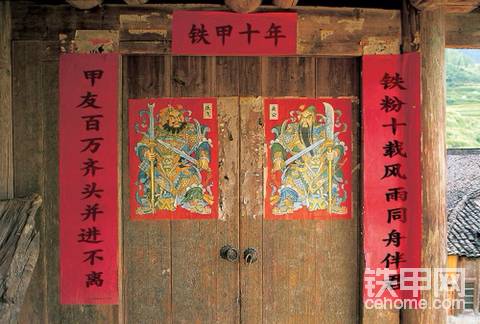 铁甲十年
铁粉十载风雨同舟伴
甲友百万齐头并进不离
铁甲网
cehome.com